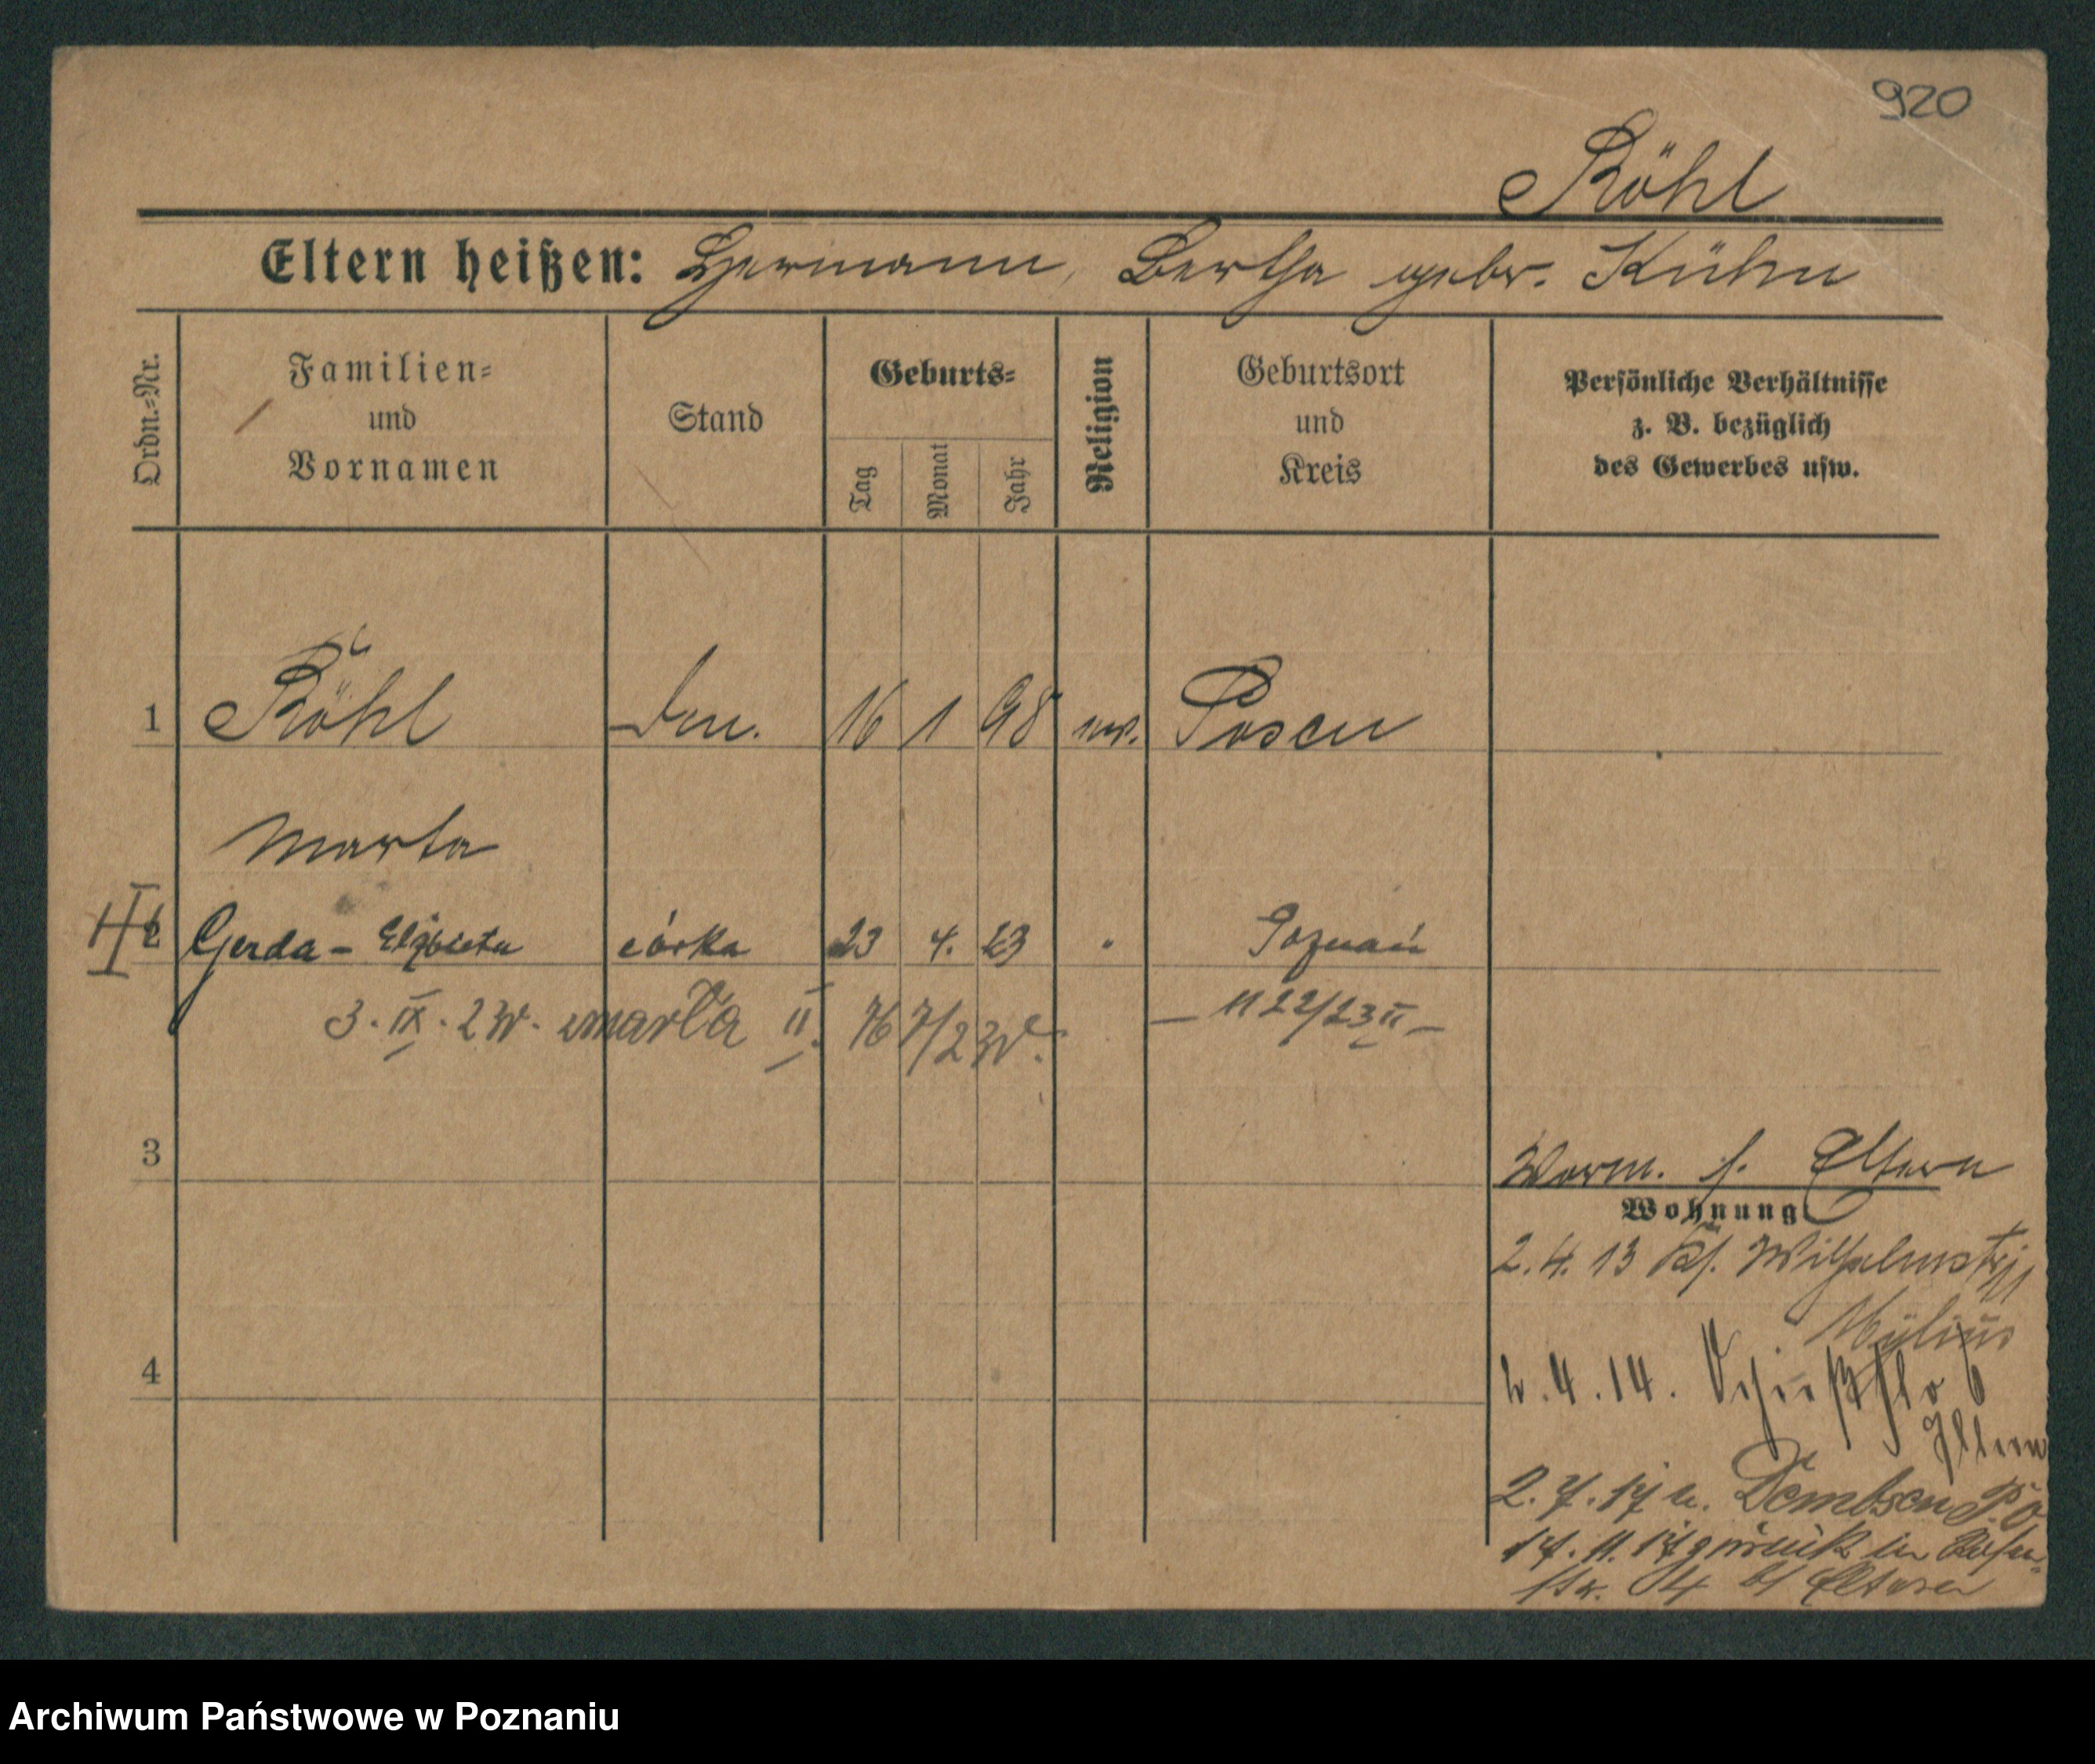 920
Röhl
Eltern heißen: Hermann, Bertha gebr. Kühn
Ordn.=Nr.
Familien=
und
Vornamen
Stand
Geburts=
Tag
Monat
Jahr
Religion
Geburtsort
und
Kreis
Persönliche Verhältnisse
z. B. bezüglich
des Gewerbes usw.
1 Röhl 16 1 98 Posen
Marta
2 Gerda - Elżbieta córka 23 4. 23 " Poznań
3. IX. 23r. zmarła II. 767/23r. - 1122/23 II -
3
Worm. s. Eltern
Wohnung
2.4.13 Wilhelmstr
Mylius
4
2.4.14. 6
Eltern
2.7.17 n. Dembsen P.O.
17.11.17 zurück in
str. 54 b/ Eltern
Archiwum Państwowe w Poznaniu